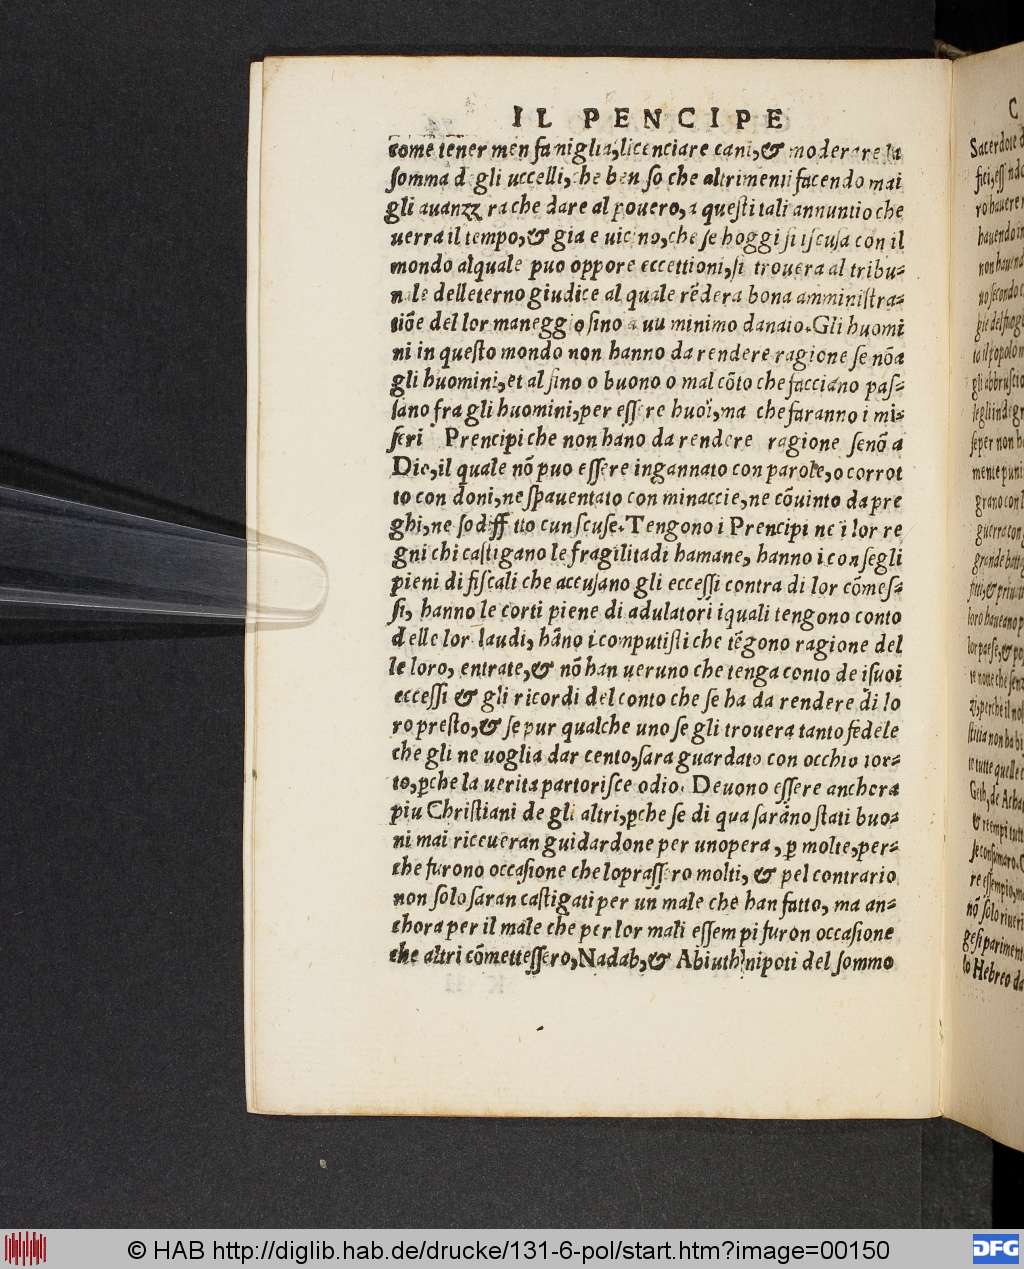 IL PENCIPE
come tener men famiglia, licenciare cani, & moderare la
somma degli uccelli, che ben so che altrimenti facendo mai
gli auanzzera che dare al pouero, a questi tali annuntio che
uerra il tempo, & gia e uicino, che se hoggi si iscusa con il
mondo alquale puo oppore eccettioni, si trouera al tribu-
nale delleterno giudice al quale rēdera bona amministra-
tiōe del lor maneggio sino a uu minimo danaio. Gli huomi
ni in questo mondo non hanno da rendere ragione se nō a
gli huomini, et al fino o buono o mal cōto che facciano pas-
sano fra gli huomini, per essere huoī, ma che faranno i mi-
seri Prencipi che non hano da rendere ragione se nō a
Dio, il quale nō puo essere ingannato con parole, o corrot
to con doni, ne spauentato con minaccie, ne cōuinto da pre
ghi, ne sodisf tto cun scuse. Tengono i Prencipi ne i lor re
gni chi castigano le fragilita di hamane, hanno i consegli
pieni di fiscali che accusano gli eccessi contra di lor cōmes-
si, hanno le corti piene di adulatori i quali tengono conto
delle lor laudi, hāno i computisti che tēgono ragione del
le loro, entrate, & nō han ueruno che tenga conto de i suoi
eccessi & gli ricordi del conto che se ha da rendere di lo
ro presto, & se pur qualche uno se gli trouera tanto fedele
che gli ne uoglia dar cento, sara guardato con occhio tor-
to, ꝑche la uerita partorisce odio. Deuono essere anchora
piu Christiani de gli altri, ꝑche se di qua sarāno stati buo-
ni mai riceueran guidardone per unopera, ꝑ molte, per-
che furono occasione che loprassero molti, & pel contrario
non solo saran castigati per un male che han fatto, ma an-
chora per il male che per lor mali essempi furon occasione
che altri cōmettessero, Nadab, & Abiuth nipoti del sommo
C
Sacerdote
ro hauere
hauendo in
non hauend
no secondo
gie del fuogo
ta il popolo
gli abbruscio
se gli indegn
se per non h
mente puni
grano con l
guerra con
grande batt
loro haueano p
lor paese, & po
te notte che senz
zi, perche il no
stitia non ha bi
te tutte quelle
Geth, de Acha
& reempi tutt
se consumaro.
re essempio, no
nō solo riueri
gesi pariment
lo Hebreo da
© HAB http://diglib.hab.de/drucke/131-6-pol/start.htm?image=00150
DFG